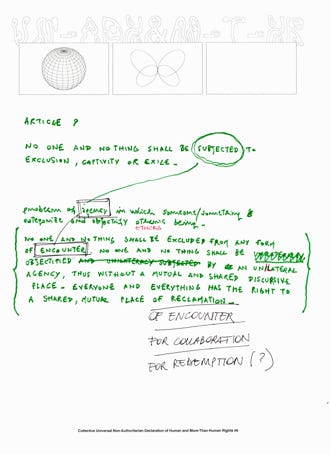 ARTICLE 9
NO ONE AND NOTHING SHALL BE SUBJECTED TO
EXCLUSION, CAPTIVITY OR EXILE -
problem of agency in which someone/something
categorize and objectify others being -
OTHERS
NO ONE AND NOTHING SHALL BE EXCLUDED FROM ANY FORM
OF ENCOUNTER. NO ONE AND NOTHING SHALL BE
OBJECTIFIED AND UNILATERALY SUBJECTED BY AN UNILATERAL
AGENCY, THUS WITHOUT A MUTUAL AND SHARED DISCURSIVE
PLACE - EVERYONE AND EVERYTHING HAS THE RIGHT TO
A SHARED, MUTUAL PLACE OF RECLAMATION -
OF ENCOUNTER
FOR COLLABORATION
FOR REDEMPTION (?)
Collective Universal Non-Authoritarian Declaration of Human and More-Than-Human Rights #6